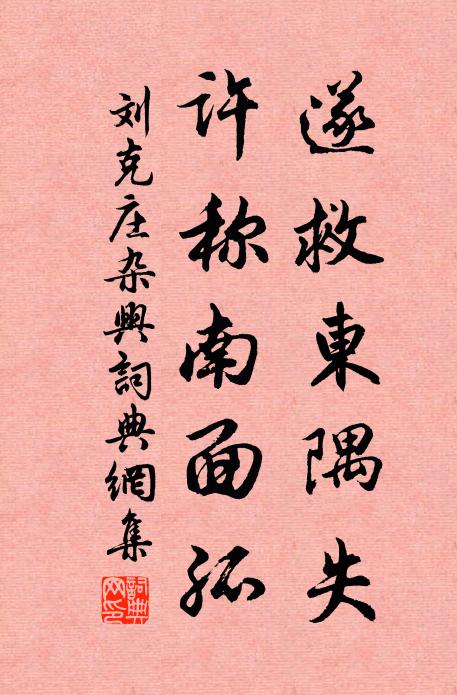 遂救東隅失
许称南面孤
刘克庄杂興詞典網集
詞典網印